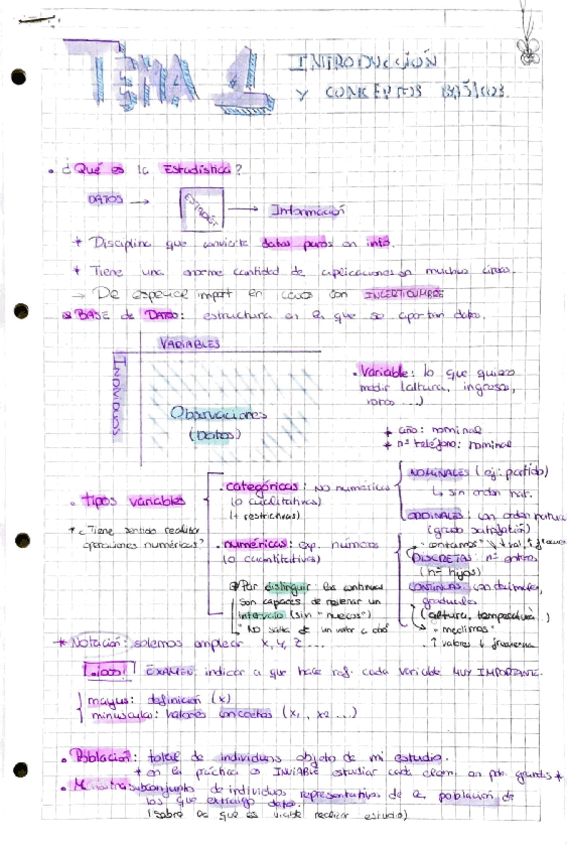 TEMA 1 INTRODUCCIÓN
Y CONCEPTOS BÁSICOS.
• ¿Qué es la Estadística?
DATOS → ESTADÍST → Información
* Disciplina que convierte datos puros en info.
* Tiene una enorme cantidad de aplicaciones en muchas áreas.
→ De especial import en casos con INCERTIDUMBRE
BASE de DATOS: estructura en la que se aportan datos.
VARIABLES
INDIVIDUOS
Observaciones
(Datos)
• Variable: lo que quiero
medir (altura, ingresos,
...)
* año: nominal
* nº teléfono: nominal
• Tipos variables
* ¿Tiene sentido realizar
operaciones numéricas?
• categóricas: NO numéricas
(o cualitativas)
(+ restrictivas)
NOMINALES (ej: partido)
↳ sin orden nat.
ORDINALES: con orden natural
(grado satisfacción)
• numéricas: exp. números
(o cuantitativas)
• "contamos" ↓ val ↑ frecuen
DISCRETAS: nº enteros
(nº hijos)
CONTINUAS con decimales,
graduales
(altura, temperatura)
• "medimos"
• ↑ valores ↓ frecuencia
Para distinguir: las continuas
son capaces de rellenar un
intervalo (sin "huecos")
• NO salta de un valor a otro
* Notación: solemos emplear X, Y, Z ...
¡Ojo! EXAMEN: indicar a que hace ref. cada variable MUY IMPORTANTE.
mayus: definición (X)
minusculas: valores concretos (x₁, x₂ ...)
• Población: total de individuos objeto de mi estudio.
* en la práctica es INVIABLE estudiar cada elem. en pob grandes *
• Muestra: subconjunto de individuos representativos de la población, de
los que extraigo datos.
(sobre la que es viable realizar estudio)